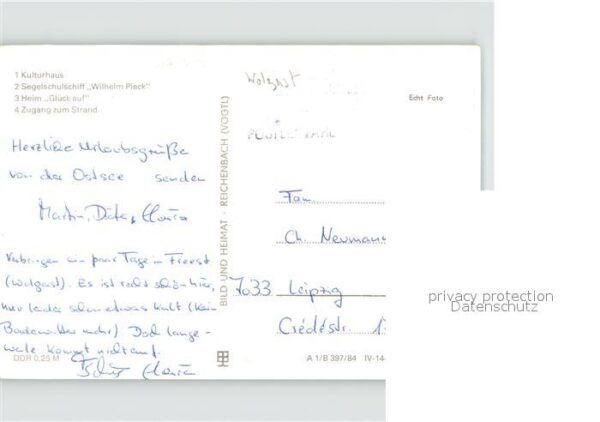 1 Kulturhaus
2 Segelschulschiff „Wilhelm Pieck"
3 Heim „Glück auf"
4 Zugang zum Strand
Herzliche Urlaubsgrüße
von der Ostsee senden
Martin,
Verbringen ein paar Tage in Freest
(Wolgast). Es ist recht schön hier,
nur leider schon etwas kalt (kein
Badewetter mehr) Doch lange-
weile kommt nicht auf.
DDR 0,25 M
BILD UND HEIMAT · REICHENBACH (VOGTL)
Wolgast
Echt Foto
Fam
Ch. Neumann
7033 Leipzig
Crédéstr.
A 1/B 397/84 IV-14-
privacy protection
Datenschutz